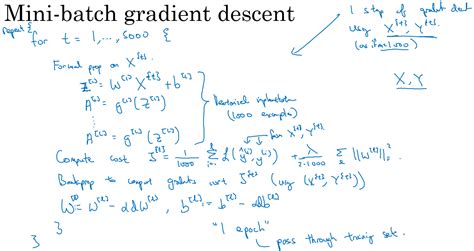 Mini-batch gradient descent
repeat {
for t = 1,..., 5000 {
Forward prop on X^{t}.
Z^[1] = W^[1] X^{t} + b^[1]
A^[1] = g^[1](Z^[1])
⋮
A^[L] = g^[L](Z^[L])
Vectorized implementation
(1000 examples)
Compute cost J^{t} = 1/1000 Σ_{i=1}^{l} L(ŷ^(i), y^(i)) + λ/(2·1000) Σ_l ||W^[l]||_F^2.
from X^{t}, Y^{t}.
Backprop to compute gradients wrt J^{t} (using (X^{t}, Y^{t}))
W^[l] = W^[l] - αdW^[l], b^[l] = b^[l] - αdb^[l]
}
}
"1 epoch"
pass through training set.
1 step of gradient descent
using X^{t}, Y^{t}.
(as if m=1000)
X, Y